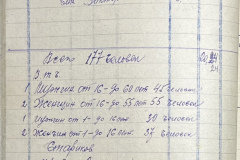 Всего 177 человек
В т.ч.
1 Мужчин от 16-до 60 лет 45 человек
2 Женщин от 16-до 55 лет 55 человек
1 Мужчин от 1-до 16 лет. 38 человек
2 Женщин от 1-до 16 лет. 37 человек
Стариков